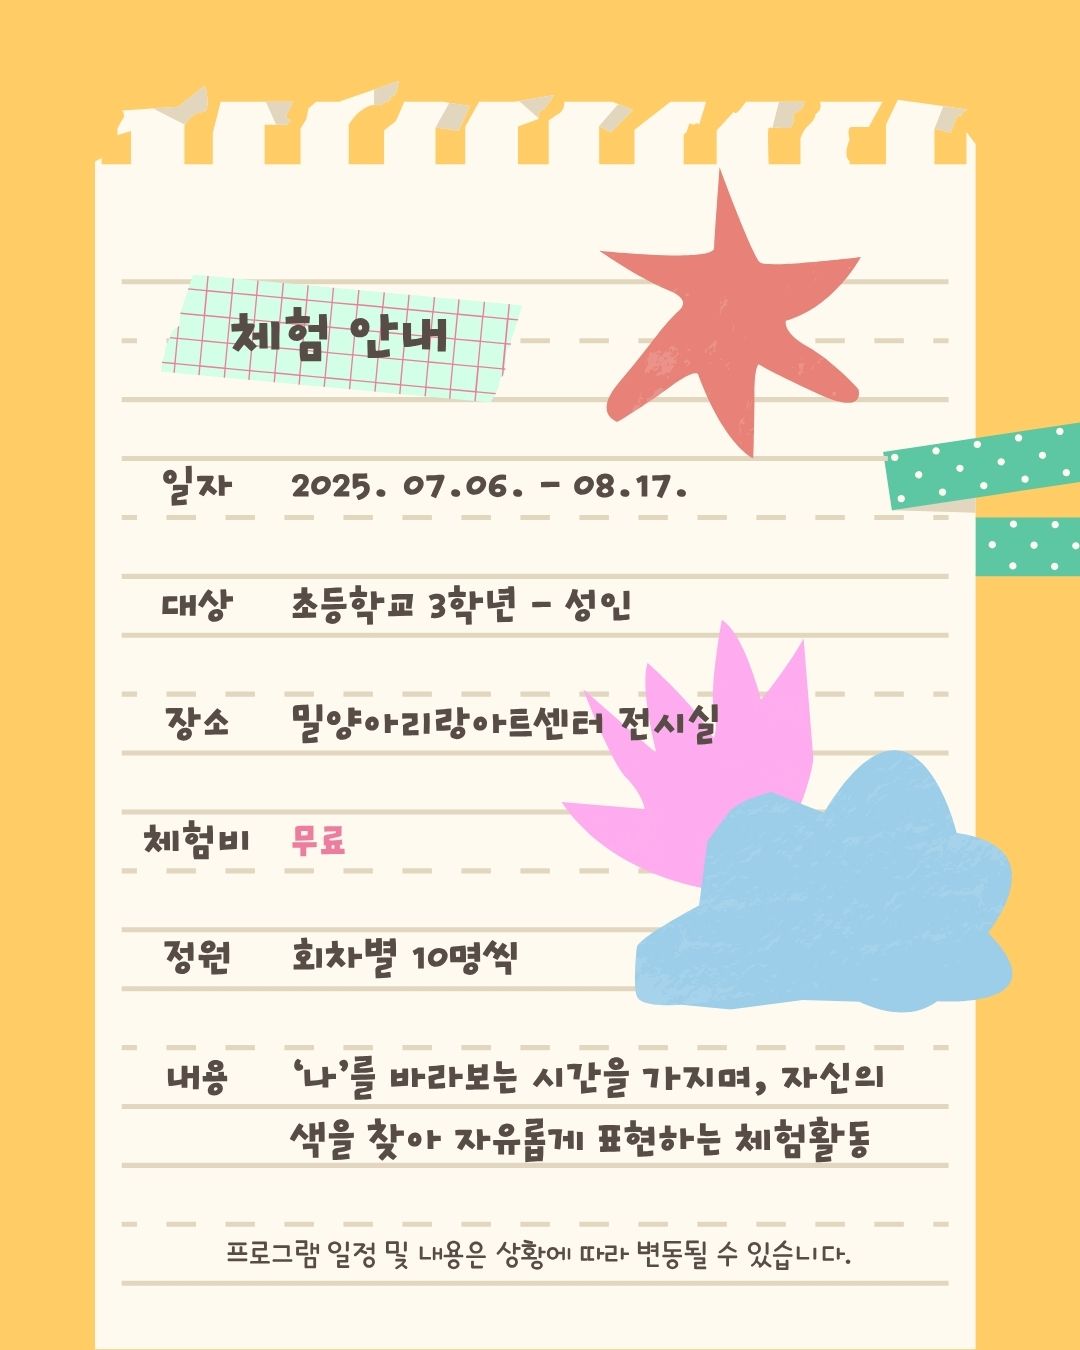 체험 안내
일자 2025. 07.06. - 08.17.
대상 초등학교 3학년 - 성인
장소 밀양아리랑아트센터 전시실
체험비 무료
정원 회차별 10명씩
내용 ‘나’를 바라보는 시간을 가지며, 자신의
색을 찾아 자유롭게 표현하는 체험활동
프로그램 일정 및 내용은 상황에 따라 변동될 수 있습니다.